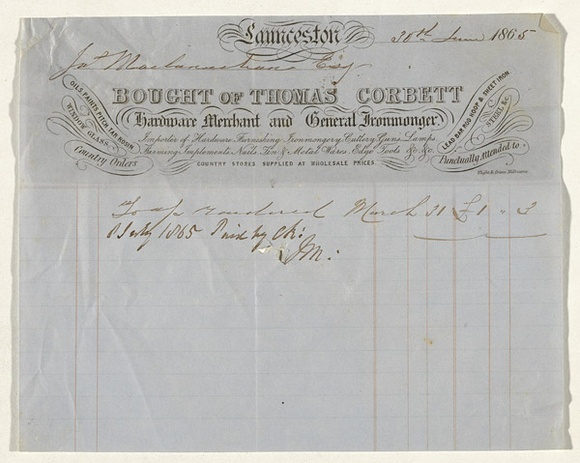 Launceston 30th June 1865
Jas Maclanachan Esq
BOUGHT OF THOMAS CORBETT
Hardware Merchant and General Ironmonger.
Importer of Hardware, Furnishing Ironmongery, Cutlery, Guns, Lamps,
Farming Implements, Nails, Tin & Metal Wares, Edge Tools &c. &c.
COUNTRY STORES SUPPLIED AT WHOLESALE PRICES.
OILS, PAINTS, PITCH, TAR, ROSIN
WINDOW GLASS.
Country Orders
LEAD BAR ROD HOOP & SHEET IRON
STEEL &c.
Punctually attended to
To a/c rendered March 31 £1 " 3
July 1865 Paid by Ch:
JM: